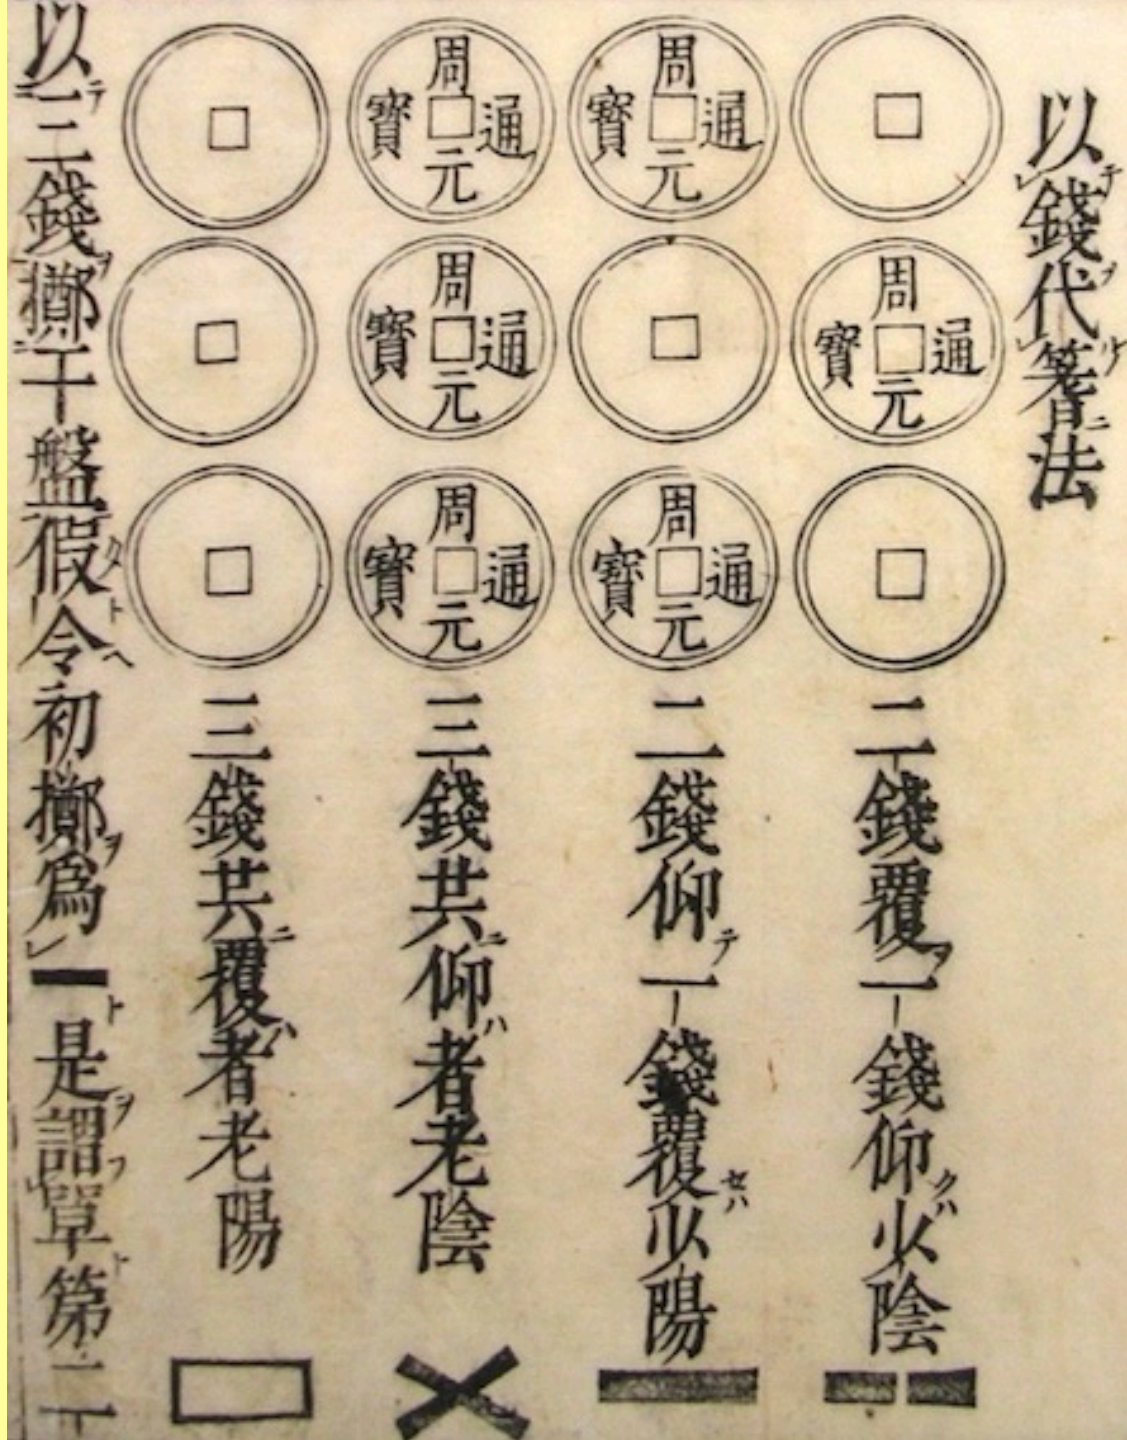 以錢代筭法
周元通寶
二錢覆一錢仰少陰
周元通寶
周元通寶
二錢仰一錢覆少陽
周元通寶
周元通寶
周元通寶
三錢共仰者老陰
三錢共覆者老陽
以三錢擲于盤假令初擲爲一是謂單第二